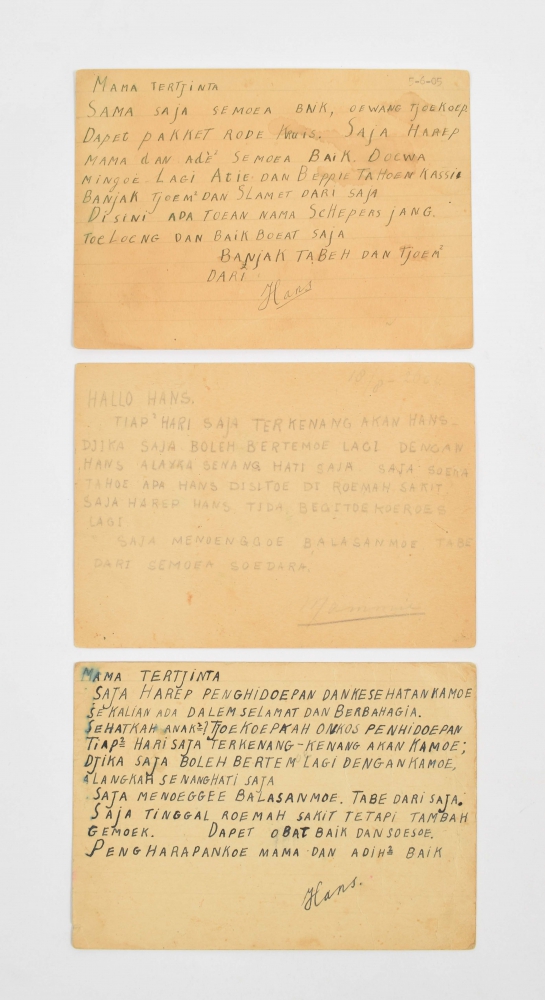 MAMA TERTJINTA
SAMA SAJA SEMOEA BAIK, OEWANG TJOEKOEP
DAPET PAKKET RODE KRUIS. SAJA HAREP
MAMA DAN ADÈ² SEMOEA BAIK. DOEWA
MINGOE LAGI ATIE DAN BEPPIE TAHOEN KASSIE
BANJAK TJOEM² DAN SLAMET DARI SAJA
DISINI ADA TOEAN NAMA SCHEPERS JANG.
TOELOENG DAN BAIK BOEAT SAJA
BANJAK TABEH DAN TJOEM²
DARI
Hans
HALLO HANS.
TIAP² HARI SAJA TERKENANG AKAN HANS.
DJIKA SAJA BOLEH BERTEMOE LAGI DENGAN
HANS SENANG HATI SAJA. SAJA SOEDA
TAHOE ADA HANS DISITOE DI ROEMAH SAKIT
SAJA HAREP HANS TIDA BEGITOE KOEROES
LAGI
SAJA MENOENGGOE BALASANMOE TABE
DARI SEMOEA SOEDARA.
MAMA TERTJINTA
SAJA HAREP PENGHIDOEPAN DAN KESEHATAN KAMOE
SEKALIAN ADA DALEM SELAMAT DAN BERBAHAGIA.
SEHATKAH ANAK²? TJOEKOEPKAH ONKOS PENHIDOEPAN
TIAP² HARI SAJA TERKENANG-KENANG AKAN KAMOE;
DJIKA SAJA BOLEH BERTEM LAGI DENGAN KAMOE,
ALANGKAH SENANG HATI SAJA
SAJA MENOEGGEE BALASANMOE. TABE DARI SAJA.
SAJA TINGGAL ROEMAH SAKIT TETAPI TAMBAH
GEMOEK. DAPET OBAT BAIK DAN SOESOE.
PENGHARAPANKOE MAMA DAN ADIH² BAIK
Hans.